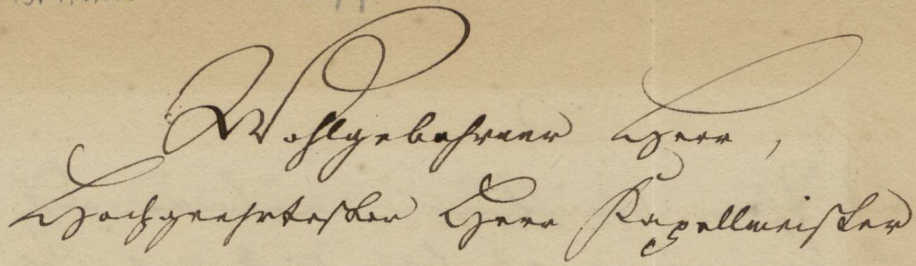 Wohlgebohrner Herr,
Hochgeehrtester Herr Kapellmeister